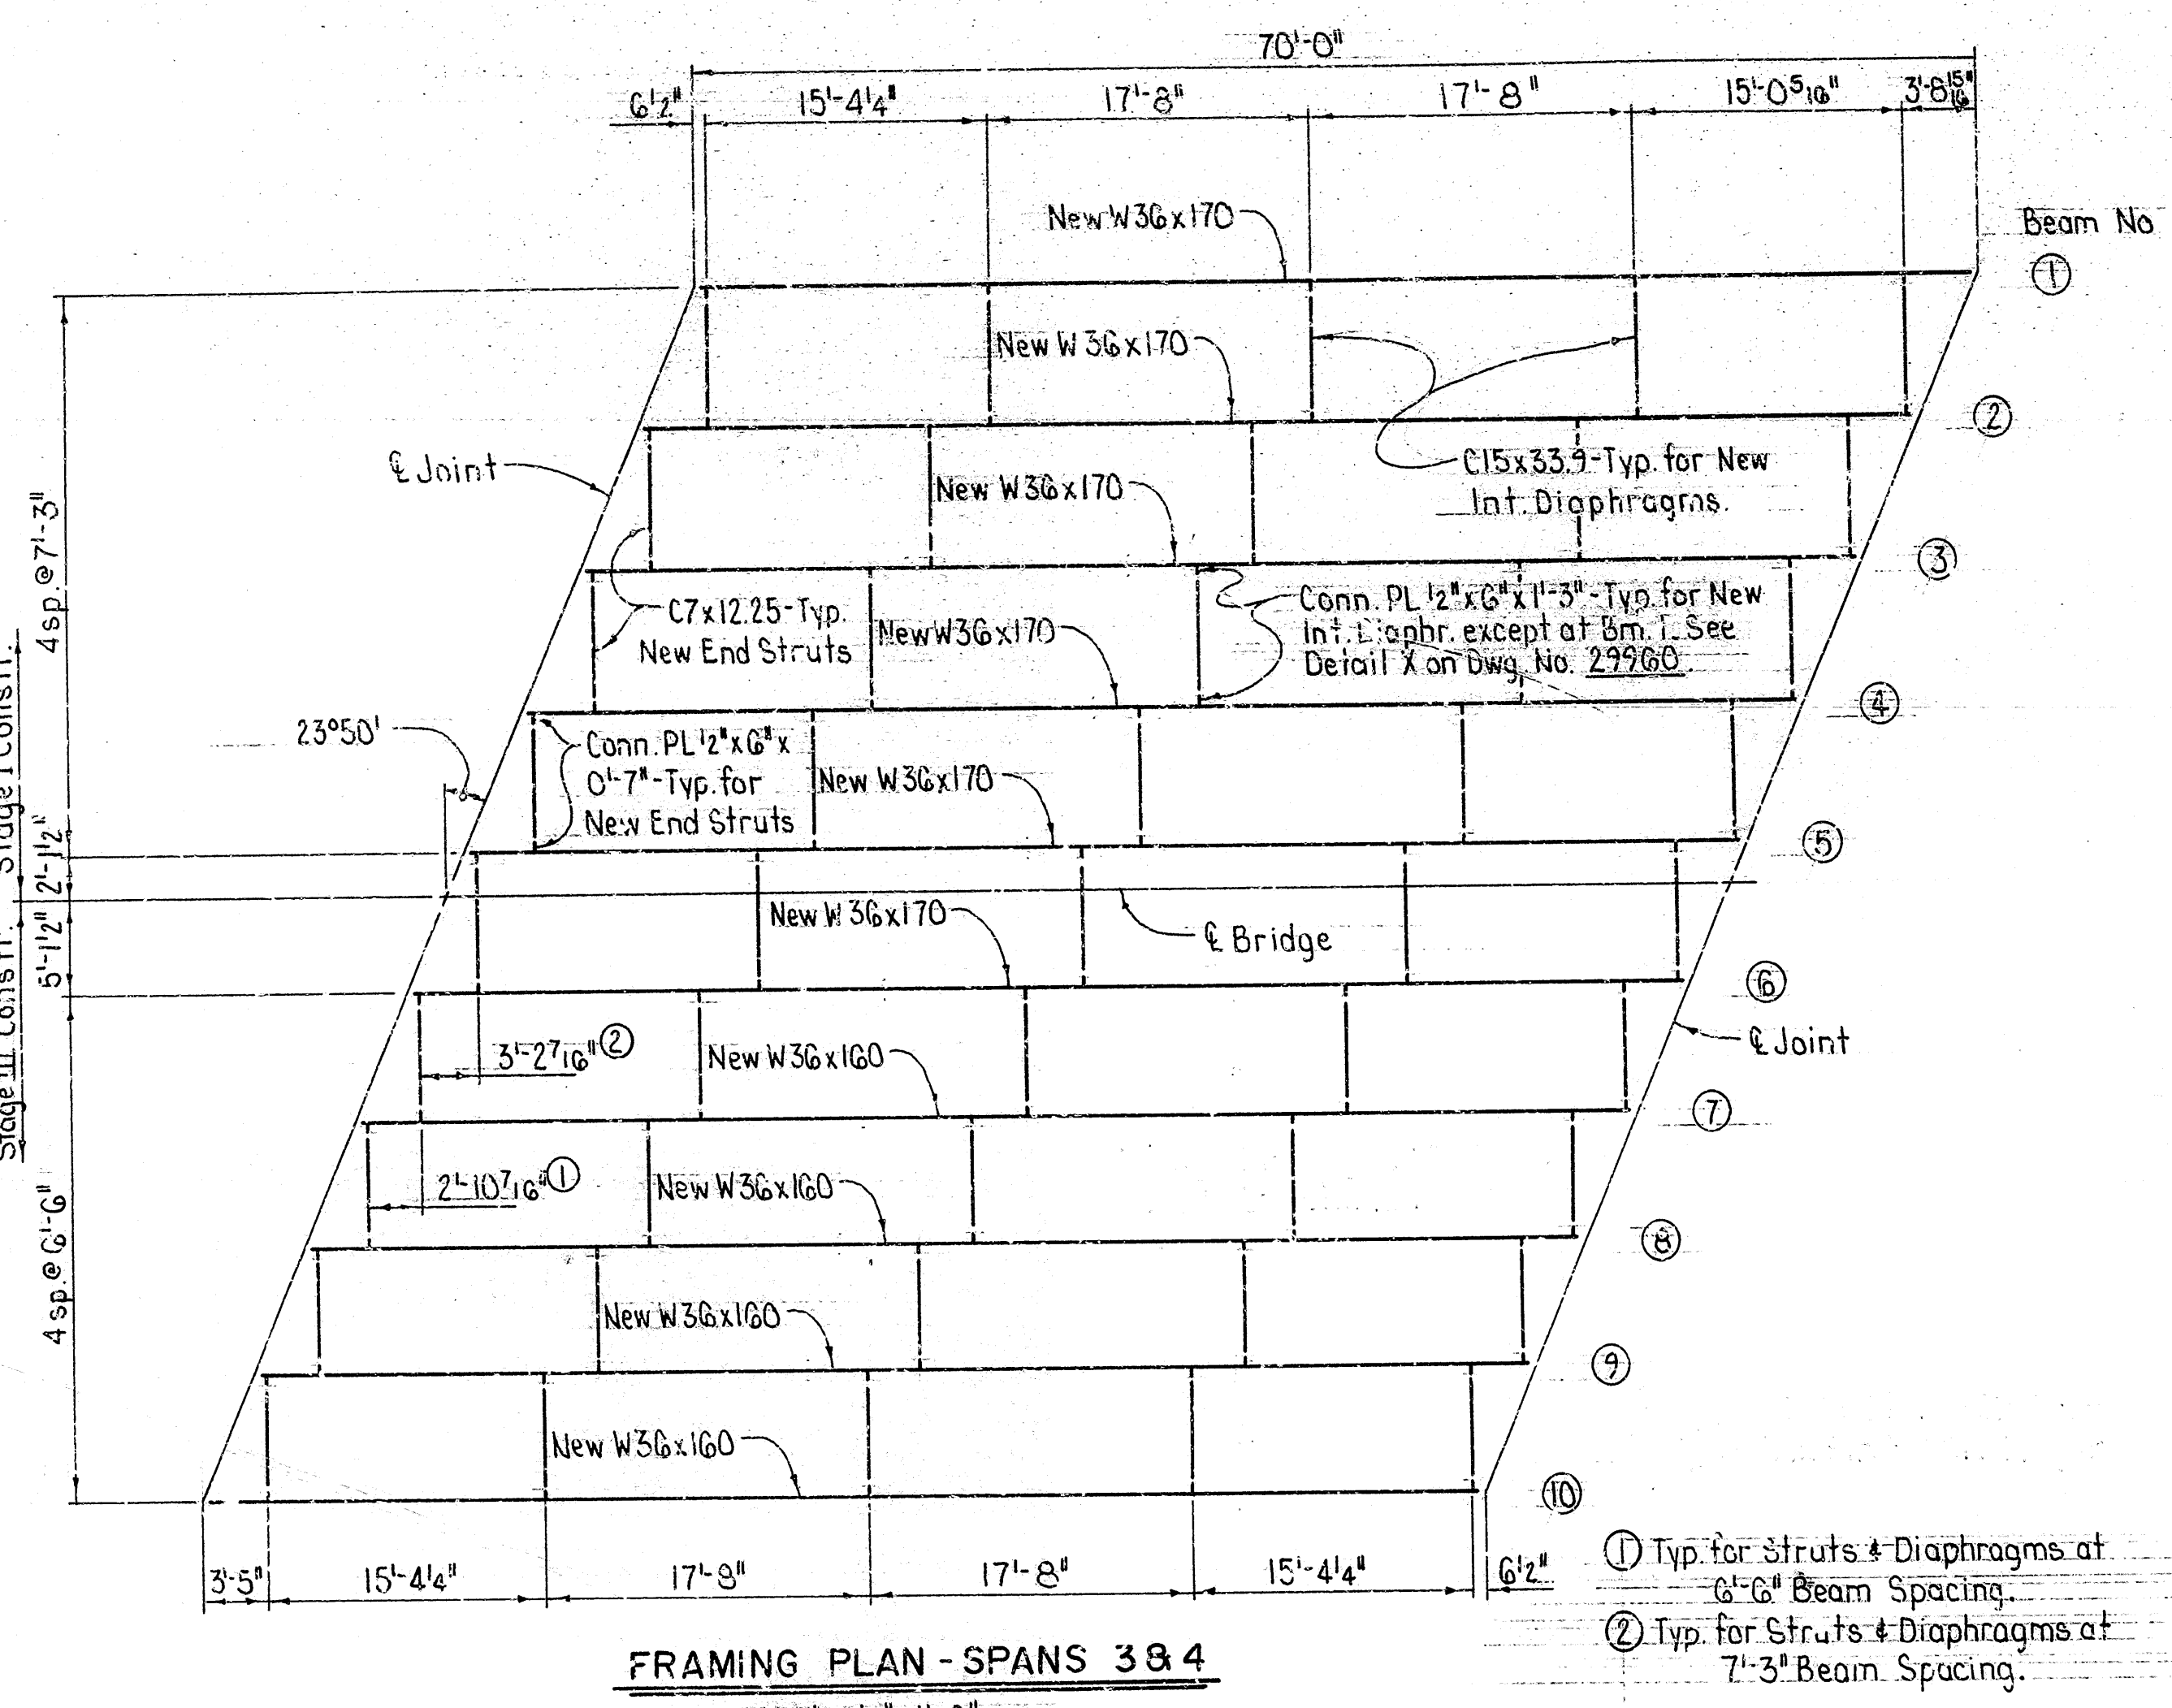 70'-0"
6½" 15'-4¼" 17'-8" 17'-8" 15'-0 5/16" 3'-8 15/16"
New W36x170
Beam No
①
New W36x170
②
℄ Joint
C15x33.9-Typ. for New
Int. Diaphragms.
New W36x170
③
4 sp. @ 7'-3"
C7x12.25-Typ.
New End Struts
New W36x170
Conn. PL ½"x6"x1'-3"-Typ. for New
Int. Diaphr. except at Bm. 1. See
Detail X on Dwg. No. 29960.
④
23°50'
Conn. PL ½"x6"x
0'-7"-Typ. for
New End Struts
New W36x170
⑤
Stage I Constr.
2'-1½"
5'-1½"
New W36x170
℄ Bridge
⑥
Stage II Constr.
3'-2 7/16" ②
New W36x160
℄ Joint
⑦
2'-10 7/16" ①
New W36x160
⑧
4 sp. @ 6'-6"
New W36x160
⑨
New W36x160
⑩
3'-5" 15'-4¼" 17'-8" 17'-8" 15'-4¼" 6½"
① Typ. for Struts & Diaphragms at
6'-6" Beam Spacing.
② Typ. for Struts & Diaphragms at
7'-3" Beam Spacing.
FRAMING PLAN - SPANS 3 & 4